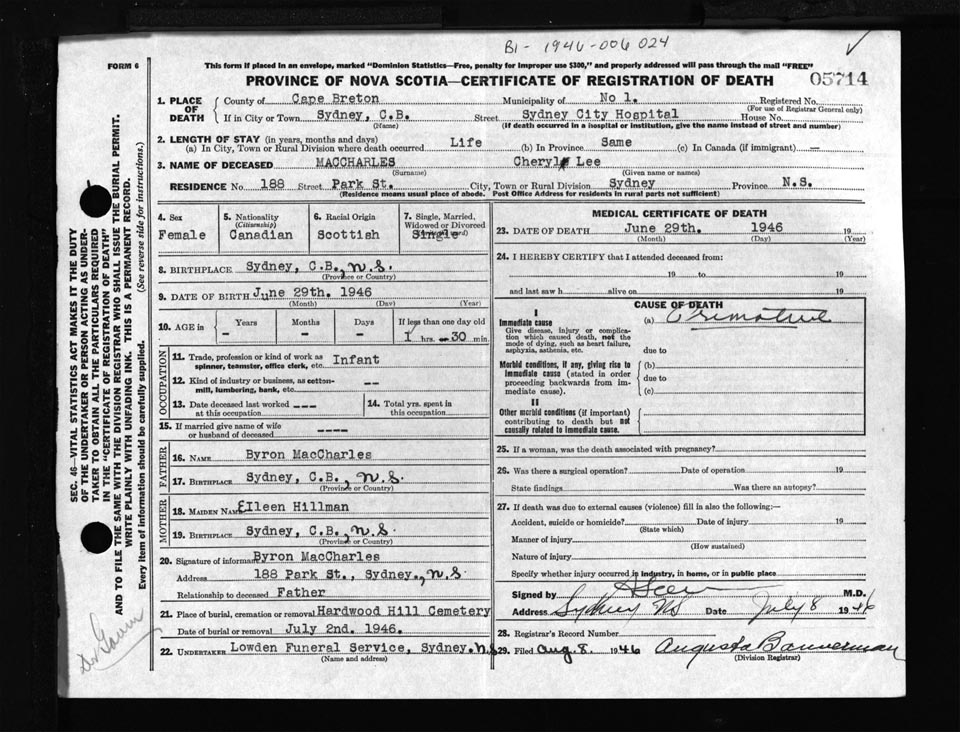 B1- 1946-006 024
FORM 6
This form if placed in an envelope, marked "Dominion Statistics—Free, penalty for improper use $300," and properly addressed will pass through the mail "FREE"
PROVINCE OF NOVA SCOTIA—CERTIFICATE OF REGISTRATION OF DEATH
05714
1. PLACE OF DEATH
County of Cape Breton Municipality of No 1. Registered No.
(For use of Registrar General only)
If in City or Town Sydney, C.B. Street Sydney City Hospital House No.
(Name) (If death occurred in a hospital or institution, give the name instead of street and number)
2. LENGTH OF STAY (in years, months and days)
(a) In City, Town or Rural Division where death occurred Life (b) in Province Same (c) In Canada (if immigrant) —
3. NAME OF DECEASED MACCHARLES Cheryl Lee
(Surname) (Given name or names)
RESIDENCE No. 188 Street Park St. City, Town or Rural Division Sydney Province N.S.
(Residence means usual place of abode. Post Office Address for residents in rural parts not sufficient)
4. Sex 5. Nationality (Citizenship) 6. Racial Origin 7. Single, Married, Widowed or Divorced
Female Canadian Scottish Single
8. BIRTHPLACE Sydney, C.B., N.S.
(Province or Country)
9. DATE OF BIRTH June 29th. 1946
(Month) (Day) (Year)
10. AGE in Years Months Days If less than one day old
- - - 1 hrs. 30 min.
OCCUPATION
11. Trade, profession or kind of work as Infant
spinner, teamster, office clerk, etc.
12. Kind of industry or business, as cotton- --
mill, lumbering, bank, etc.
13. Date deceased last worked ---
at this occupation
14. Total yrs. spent in
this occupation
15. If married give name of wife
or husband of deceased ----
FATHER
16. NAME Byron MacCharles
17. BIRTHPLACE Sydney, C.B., N.S.
(Province or Country)
MOTHER
18. MAIDEN NAME Eileen Hillman
19. BIRTHPLACE Sydney, C.B., N.S.
(Province or Country)
20. Signature of informant Byron MacCharles
Address 188 Park St., Sydney., N.S.
Relationship to deceased Father
21. Place of burial, cremation or removal Hardwood Hill Cemetery
Date of burial or removal July 2nd. 1946.
22. UNDERTAKER Lowden Funeral Service, Sydney. N.S.
(Name and address)
MEDICAL CERTIFICATE OF DEATH
23. DATE OF DEATH June 29th. 1946 19
(Month) (Day) (Year)
24. I HEREBY CERTIFY that I attended deceased from:
19 to 19
and last saw h alive on 19
CAUSE OF DEATH
I
Immediate cause (a) Premature
Give disease, injury or complica-
tion which caused death, not the
mode of dying, such as heart failure,
asphyxia, asthenia, etc. due to
Morbid conditions, if any, giving rise to (b)
immediate cause (stated in order due to
proceeding backwards from im-
mediate cause). (c)
II
Other morbid conditions (if important)
contributing to death but not
causally related to immediate cause.
25. If a woman, was the death associated with pregnancy?
26. Was there a surgical operation? Date of operation 19
State findings Was there an autopsy?
27. If death was due to external causes (violence) fill in also the following:—
Accident, suicide or homicide? Date of injury 19
(State which)
Manner of injury
(How sustained)
Nature of injury
Specify whether injury occurred in industry, in home, or in public place
Signed by M.D.
Address Sydney NS Date July 8 1946
28. Registrar's Record Number
29. Filed Aug. 8. 1946 Augusta Bannerman
(Division Registrar)
SEC. 46—VITAL STATISTICS ACT MAKES IT THE DUTY
OF THE UNDERTAKER OR PERSON ACTING AS UNDER-
TAKER TO OBTAIN ALL THE PARTICULARS REQUIRED
IN THE "CERTIFICATE OF REGISTRATION OF DEATH"
AND TO FILE THE SAME WITH THE DIVISION REGISTRAR WHO SHALL ISSUE THE BURIAL PERMIT.
WRITE PLAINLY WITH UNFADING INK. THIS IS A PERMANENT RECORD.
Every item of information should be carefully supplied. (See reverse side for instructions.)